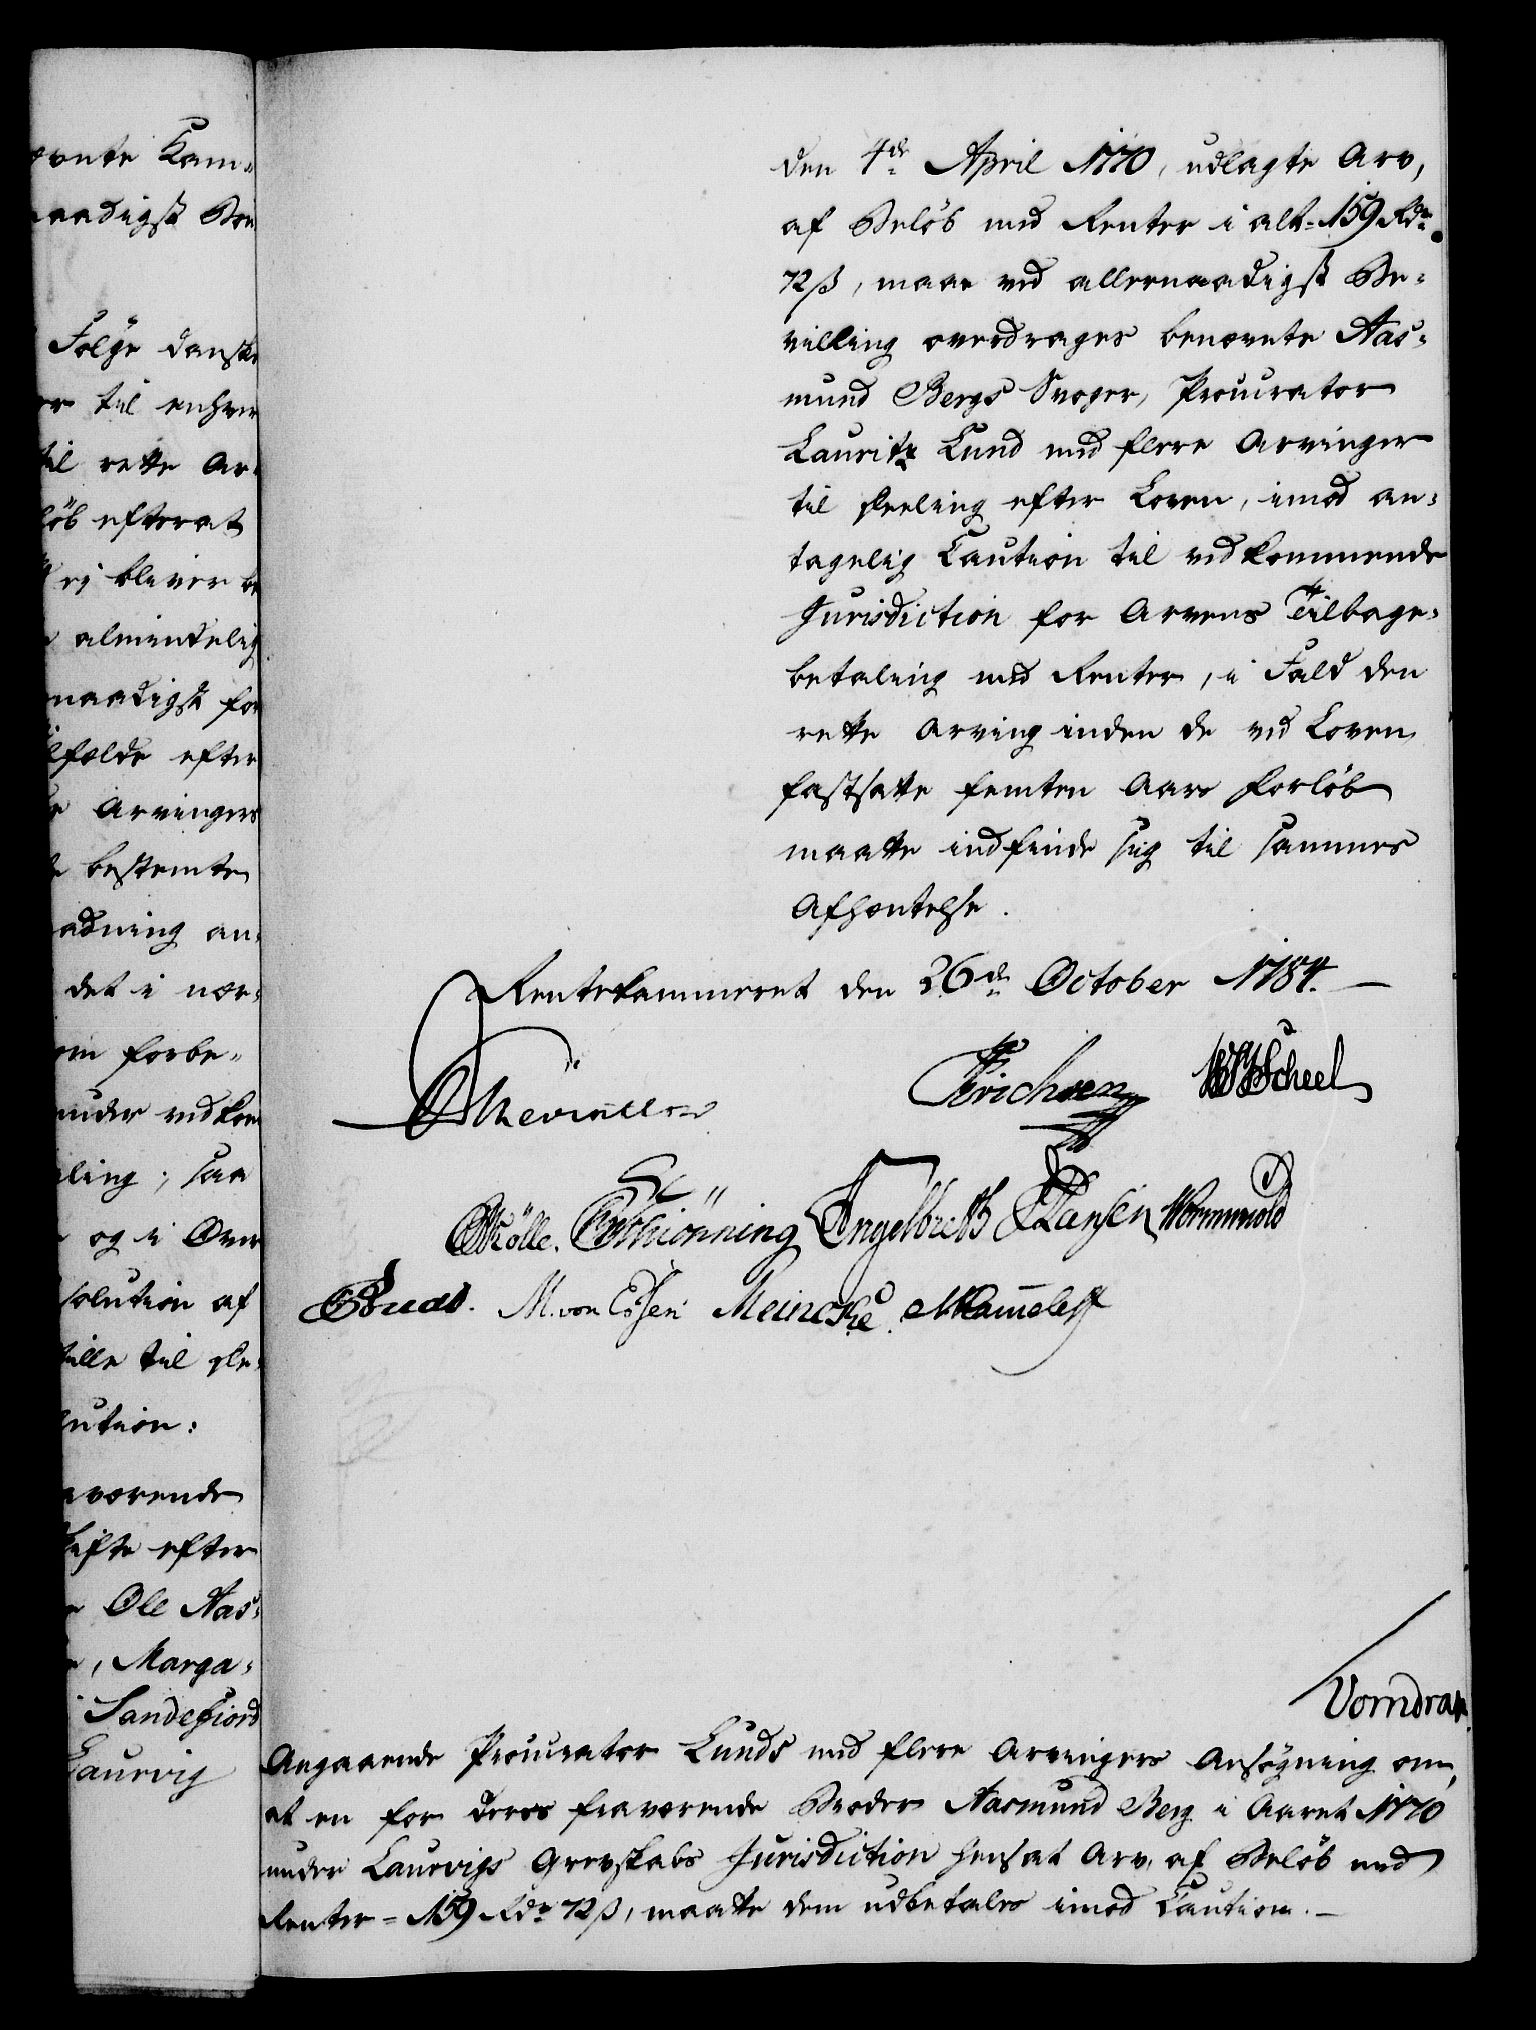 ævnte Kam-
naadigst Be-
Følge danske
er til enhver
til rette Ar-
løb efterat
ej bliver be
almindelig
naadigst for
lfælde efter
Arvingers
bestemte
adning an-
det i nær-
om forbe-
under vedkom
ling, saa
og i Over
solution af
stille til de-
lution:
værende
kifte efter
Ole Aas-
, Marga-
Sandefiord
Laurvig
den 4de April 1770, udlagte Arv,
af Beløb med Renter i alt = 159 Rdr
72 ß, maae ved allernaadigst Be-
villing overdrages benævnte Aas-
mund Bergs Svoger, Procurator
Lauritz Lund med flere Arvinger
til Deeling efter Loven, imod an-
tagelig Caution til vedkommende
Jurisdiction for Arvens Tilbage-
betaling med Renter, i Fald den
rette Arving inden de ved Loven
fastsatte femten Aars Forløb
maatte indfinde sig til sammes
Afhentelse.
Rentekammeret den 26de October 1784.
Erichsen WScheel
Mølle. Schiönning Engelbreth Hansen Wormskiold
M. von Essen Meincke.
Vorndran.
Angaaende Procurator Lunds med flere Arvingers Ansøgning om,
at en for deres fraværende Broder Aasmund Berg i Aaret 1770
under Laurvigs Grevskabs Jurisdiction hensat Arv, af Beløb med
Renter = 159 Rdr 72 ß, maatte dem udbetales imod Caution.